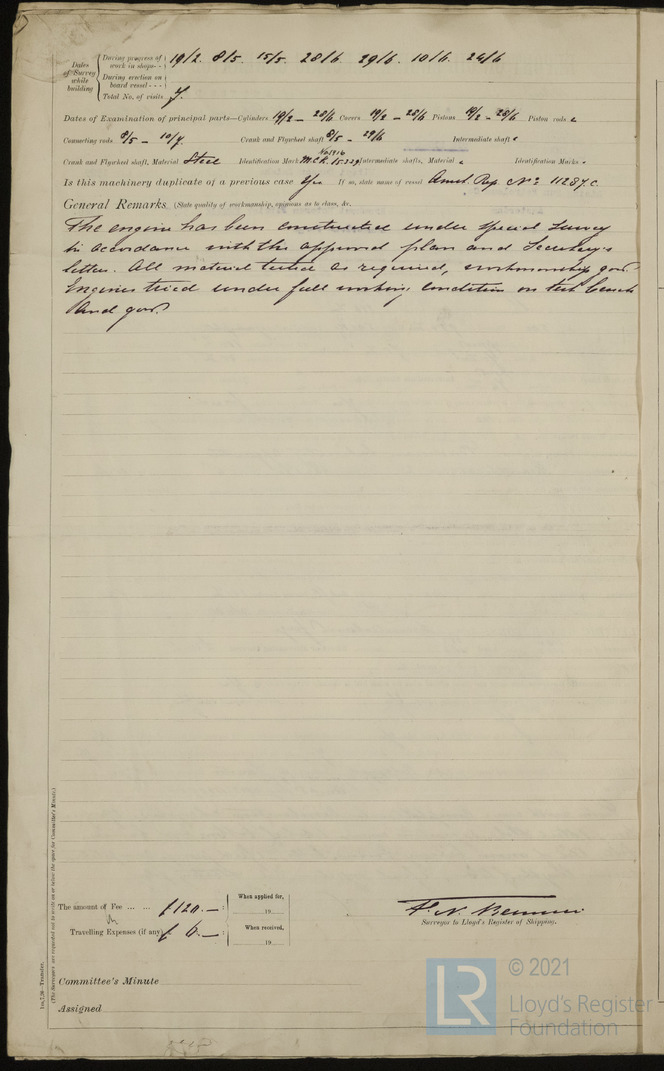 Dates of Survey while building
During progress of work in shops - - 19/2. 8/5. 15/5. 28/6. 29/6. 10/6. 24/6
During erection on board vessel - - -
Total No. of visits 7.
Dates of Examination of principal parts—Cylinders 19/2 – 28/6 Covers 19/2 – 28/6 Pistons 19/2 – 28/6 Piston rods
Connecting rods 8/5 – 10/7 Crank and Flywheel shaft 8/5 – 29/6 Intermediate shaft
Crank and Flywheel shaft, Material Steel Identification Mark No 1916 M.C.K. 15229 Intermediate shafts, Material Identification Marks
Is this machinery duplicate of a previous case Yes If so, state name of vessel Amst. Rep. No: 11237.C.
General Remarks (State quality of workmanship, opinions as to class, &c.
The engine has been constructed under special survey
in accordance with the approved plan and Secretary's
letter. All material tested as required, workmanship good.
Engines tried under full working condition on test bench
and good.
The amount of Fee ... ... £120.— :
When applied for,
19
Travelling Expenses (if any) £ 6.— :
When received,
19
Surveyor to Lloyd's Register of Shipping.
Committee's Minute
Assigned
(The Surveyors are requested not to write on or below the space for Committee's Minute.)
© 2021
LR
Lloyd's Register
Foundation